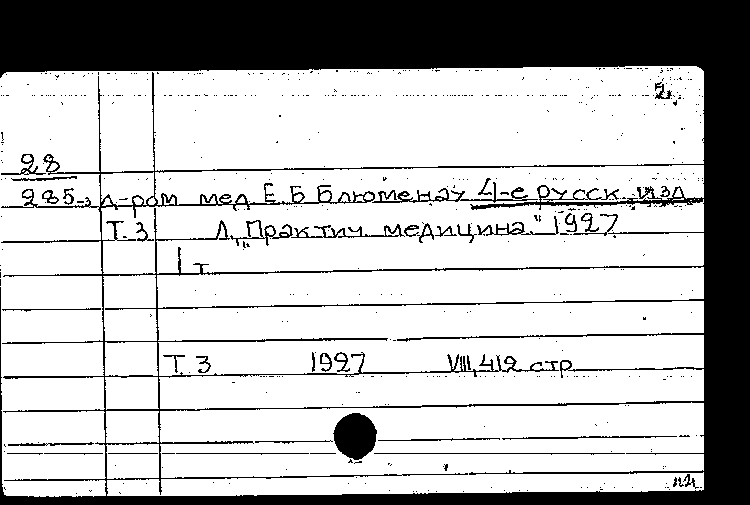 2.
28
285-3 д-ром мед. Е. Б Блюменау 4-е русск. изд
Т. 3 Л. „Практич. медицина." 1927
1 т.
Т. 3 1927 VIII, 412 стр